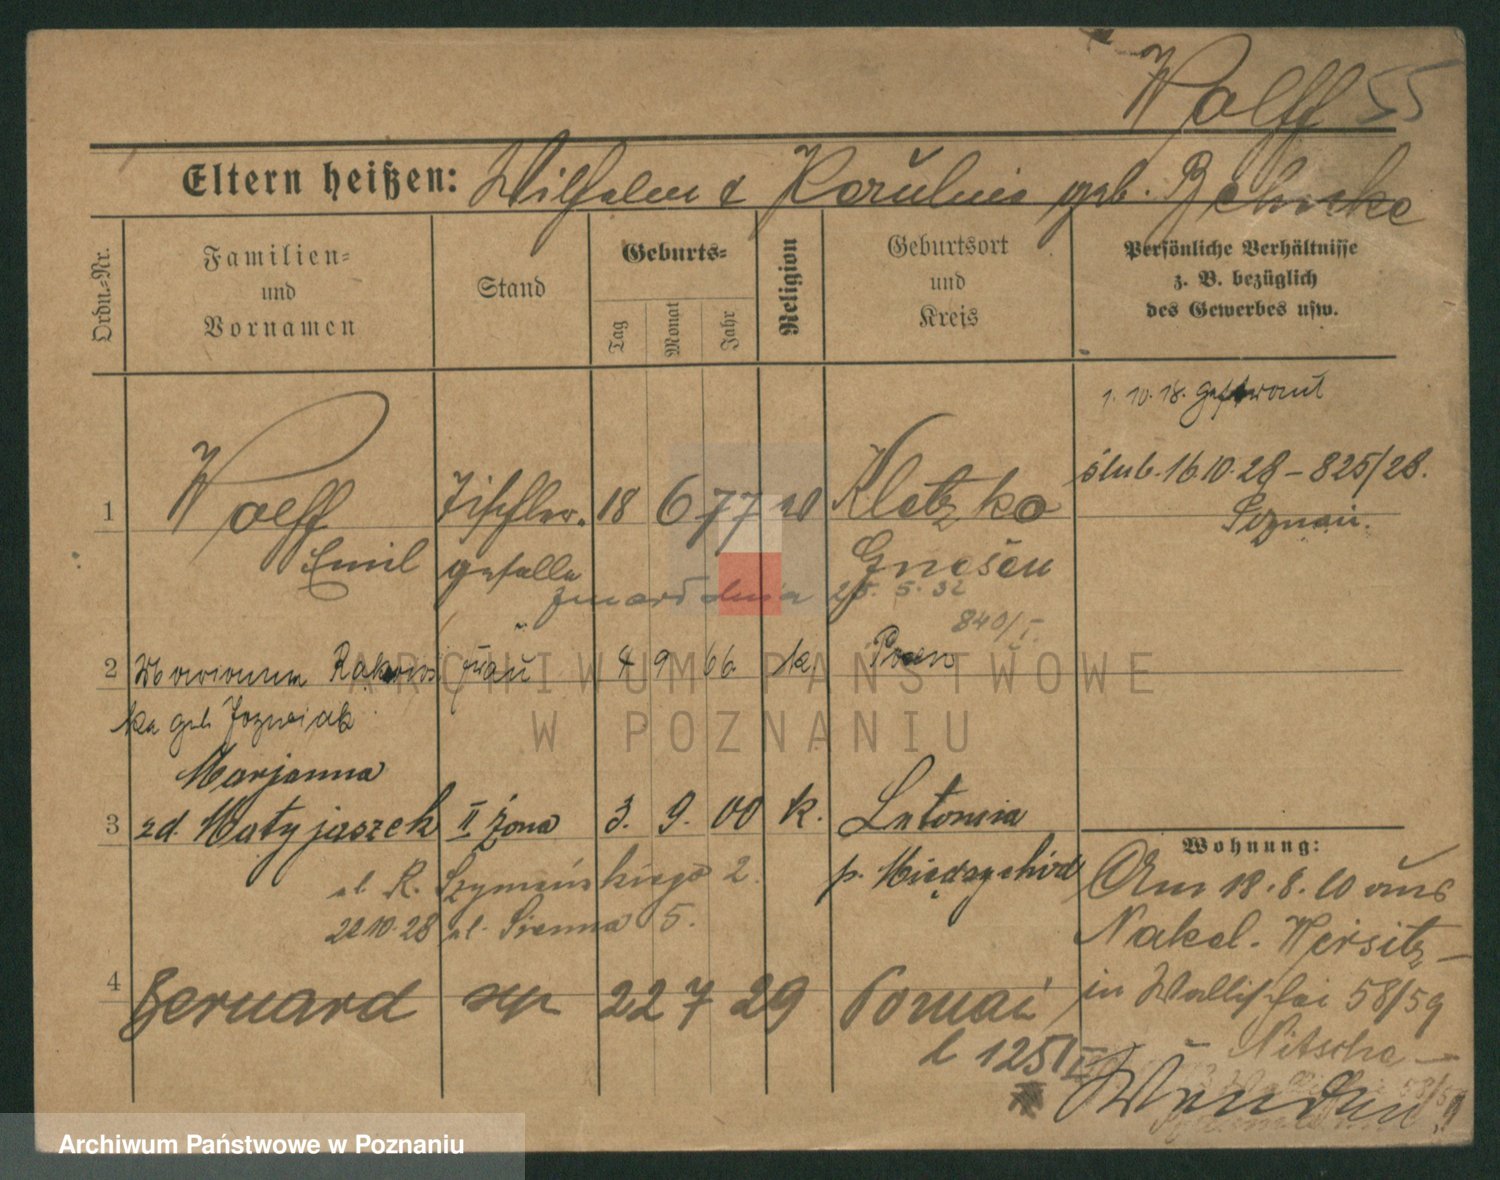 Wolff 55
Eltern heißen: Wilhelm & Karuline geb. Behnke
Ordn.-Nr.
Familien-
und
Vornamen
Stand
Geburts-
Tag
Monat
Jahr
Religion
Geburtsort
und
Kreis
Persönliche Verhältnisse
z. B. bezüglich
des Gewerbes usw.
1. 10. 18. getraut
ślub. 16 10. 28 – 825/28.
Poznań.
1 Wolff Tischler- 18 6 77 Kletzko
Emil geselle Gnesen
zmarł dnia 25. 5. 32
840/I.
2 Marianna Rakows frau 4 9 66 k. Posen
ka geb Jozwiak
Marjanna
3 zd. Matyjaszek II żona 3. 9. 00 k. Letownia
p. Międzychód
ul. R. Szymańskiego 2.
22 10. 28 ul. Sienna 5.
Wohnung:
Am 18. 8. 10 aus
Nakel. Wirsitz
in Wallischei 58/59
Nitsche
4 Bernard syn 22 7 29 Poznań
l 125/II
ARCHIWUM PAŃSTWOWE
W POZNANIU
Archiwum Państwowe w Poznaniu